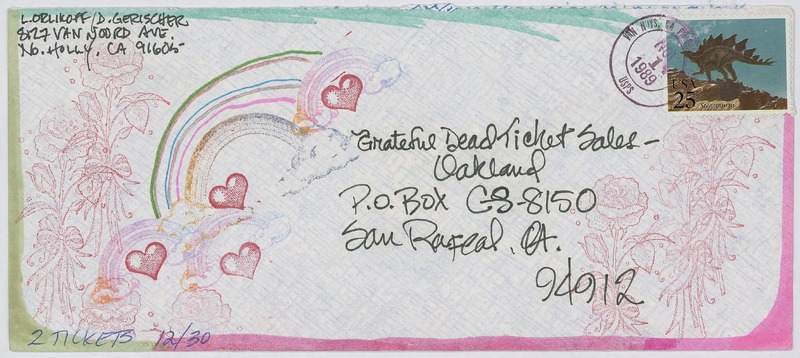 L. ORLIKOFF/D. GERISCHER
8127 VAN NOORD AVE.
NO. HOLLY, CA 91605
VAN NUYS, CA
1989
USPS
USA
25
Stegosaurus
Grateful Dead Ticket Sales -
Oakland
P.O. Box CS-8150
San Rafeal, CA.
94912
2 TICKETS 12/30